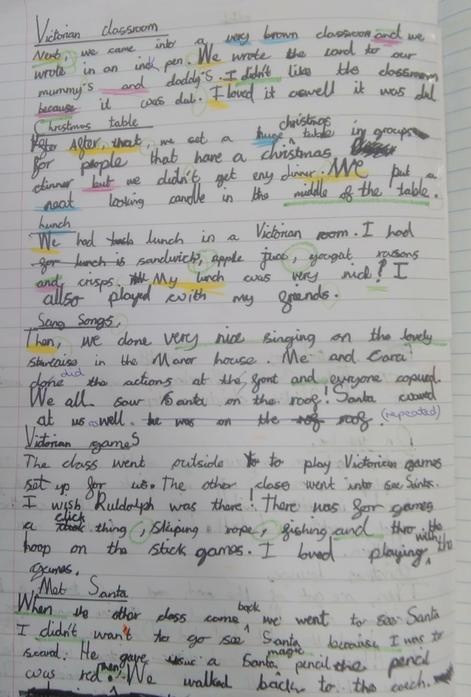 Victorian classroom
Next, we came into a very brown classroom and we
wrote in an ink pen. We wrote the card to our
mummy's and daddy's. I didn't like the classroom
because it was dul. I loved it aswell it was dul
Christmas table
After after, that, we set a huge christmas table in groups
for people that have a christmas
dinner but we didn't get eny dinner. We put a
neat looking candle in the middle of the table.
Lunch
We had lunch in a Victorian room. I had
for lunch is sandwich, apple juce, yougat raisons
and crisps. My lunch was very nice! I
allso played with my friends.
Sang Songs.
Then, we done very nice singing on the lovely
staircaise in the Manor house. Me and Cara
done did the actions at the front and everyone copied.
We all saw Santa on the roof! Santa waved
at us aswell. he was on the roof roof. (repeated)
Victorian games
The class went outside to to play Victorian games
set up for us. The other class went into see Santa.
I wish Ruldolph was there! There was for games
a click thing, skiping rope, fishing and thro the
hoop on the stick games. I loved playing with the
games.
Met Santa
When the other class came back we went to see Santa
I didn't want to go see Santa because I was to
scard. He gave us a Santa magic pencil the pencil
was red. We walked back to the coach.